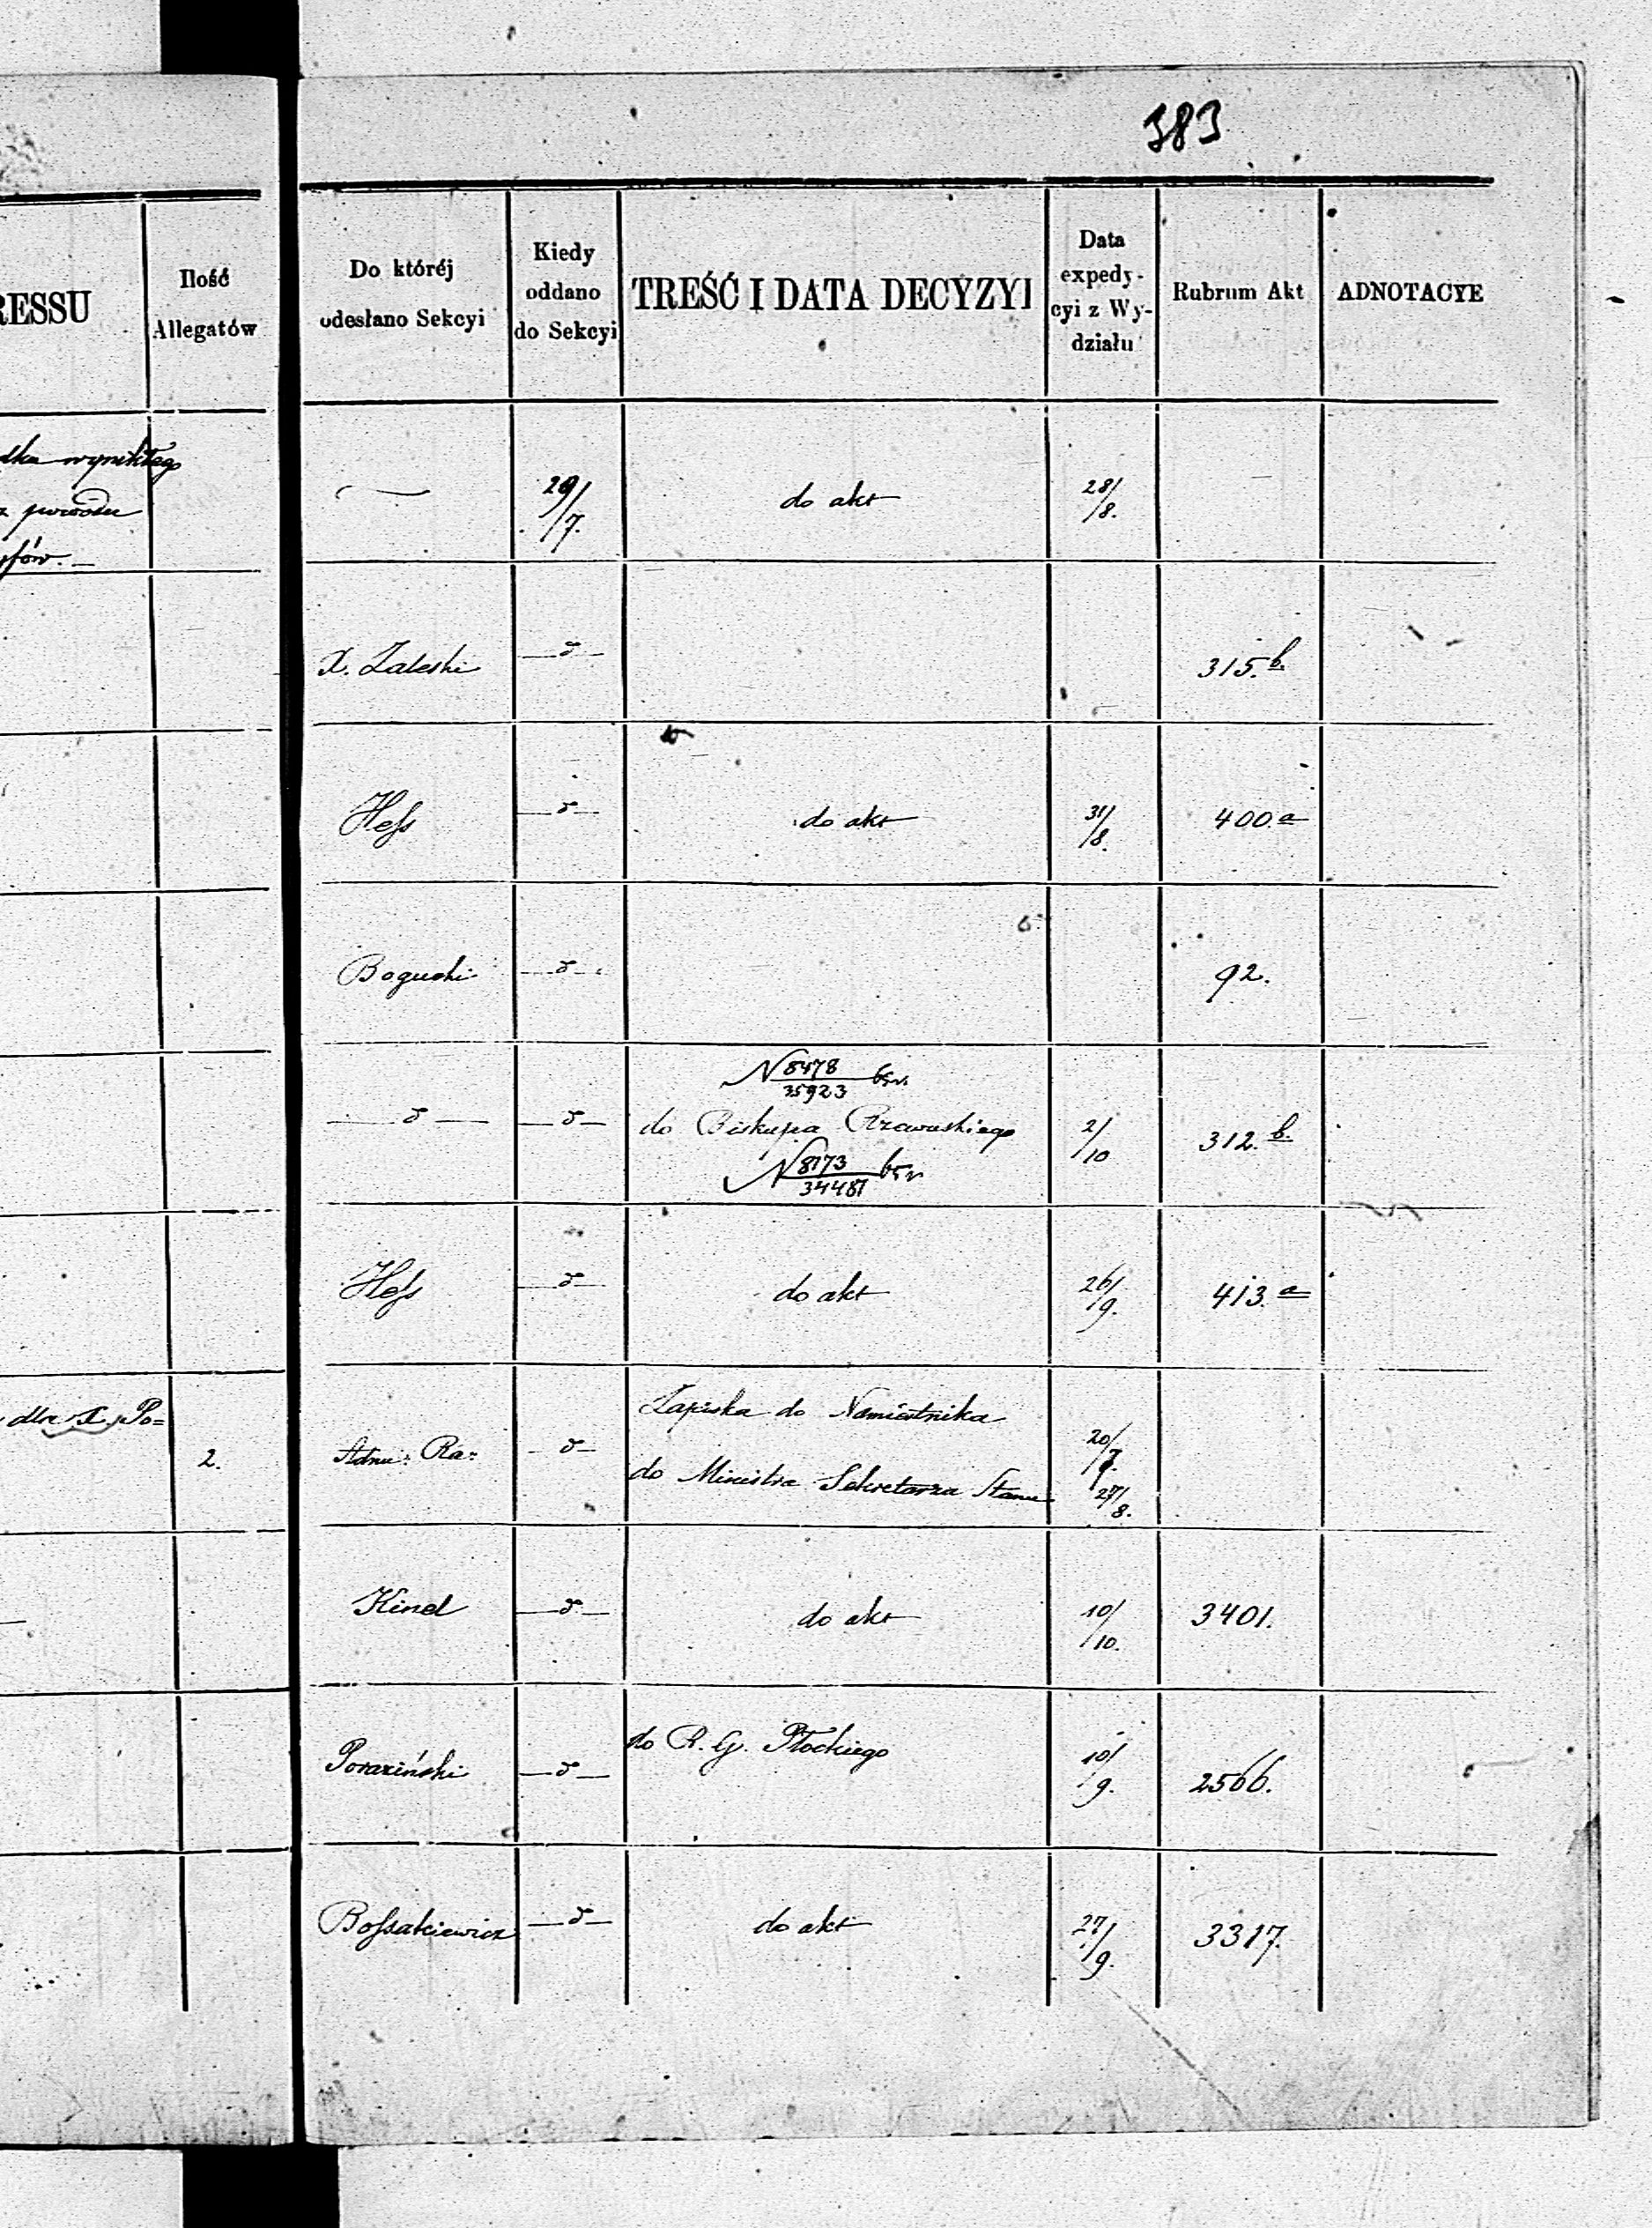 383
RESSU
Ilość
Allegatów
Do któréj
odesłano Sekcyi
Kiedy
oddano
do Sekcyi
TREŚĆ I DATA DECYZYI
Data
expedy-
cyi z Wy-
działu
Rubrum Akt
ADNOTACYE
dka wynikłego
z powodu
28/8.
do akt
X. Zaleski
315.b.
Hess
do akt
31/8.
400.a
Boguski
92.
N 8478/35923
do Biskupa Rzewuskiego
2/10
312.b.
N 8173/34487
Hess
do akt
26/9.
413.a
dla X. Po=
2.
Adm: Ra:
Zapiska do Namiestnika
do Ministra Sekretarza Stanu
27/8.
Kind
do akt
10/10.
3401.
do R. G. Płockiego
10/9.
2566.
Bossakiewicz
do akt
27/9.
3317.